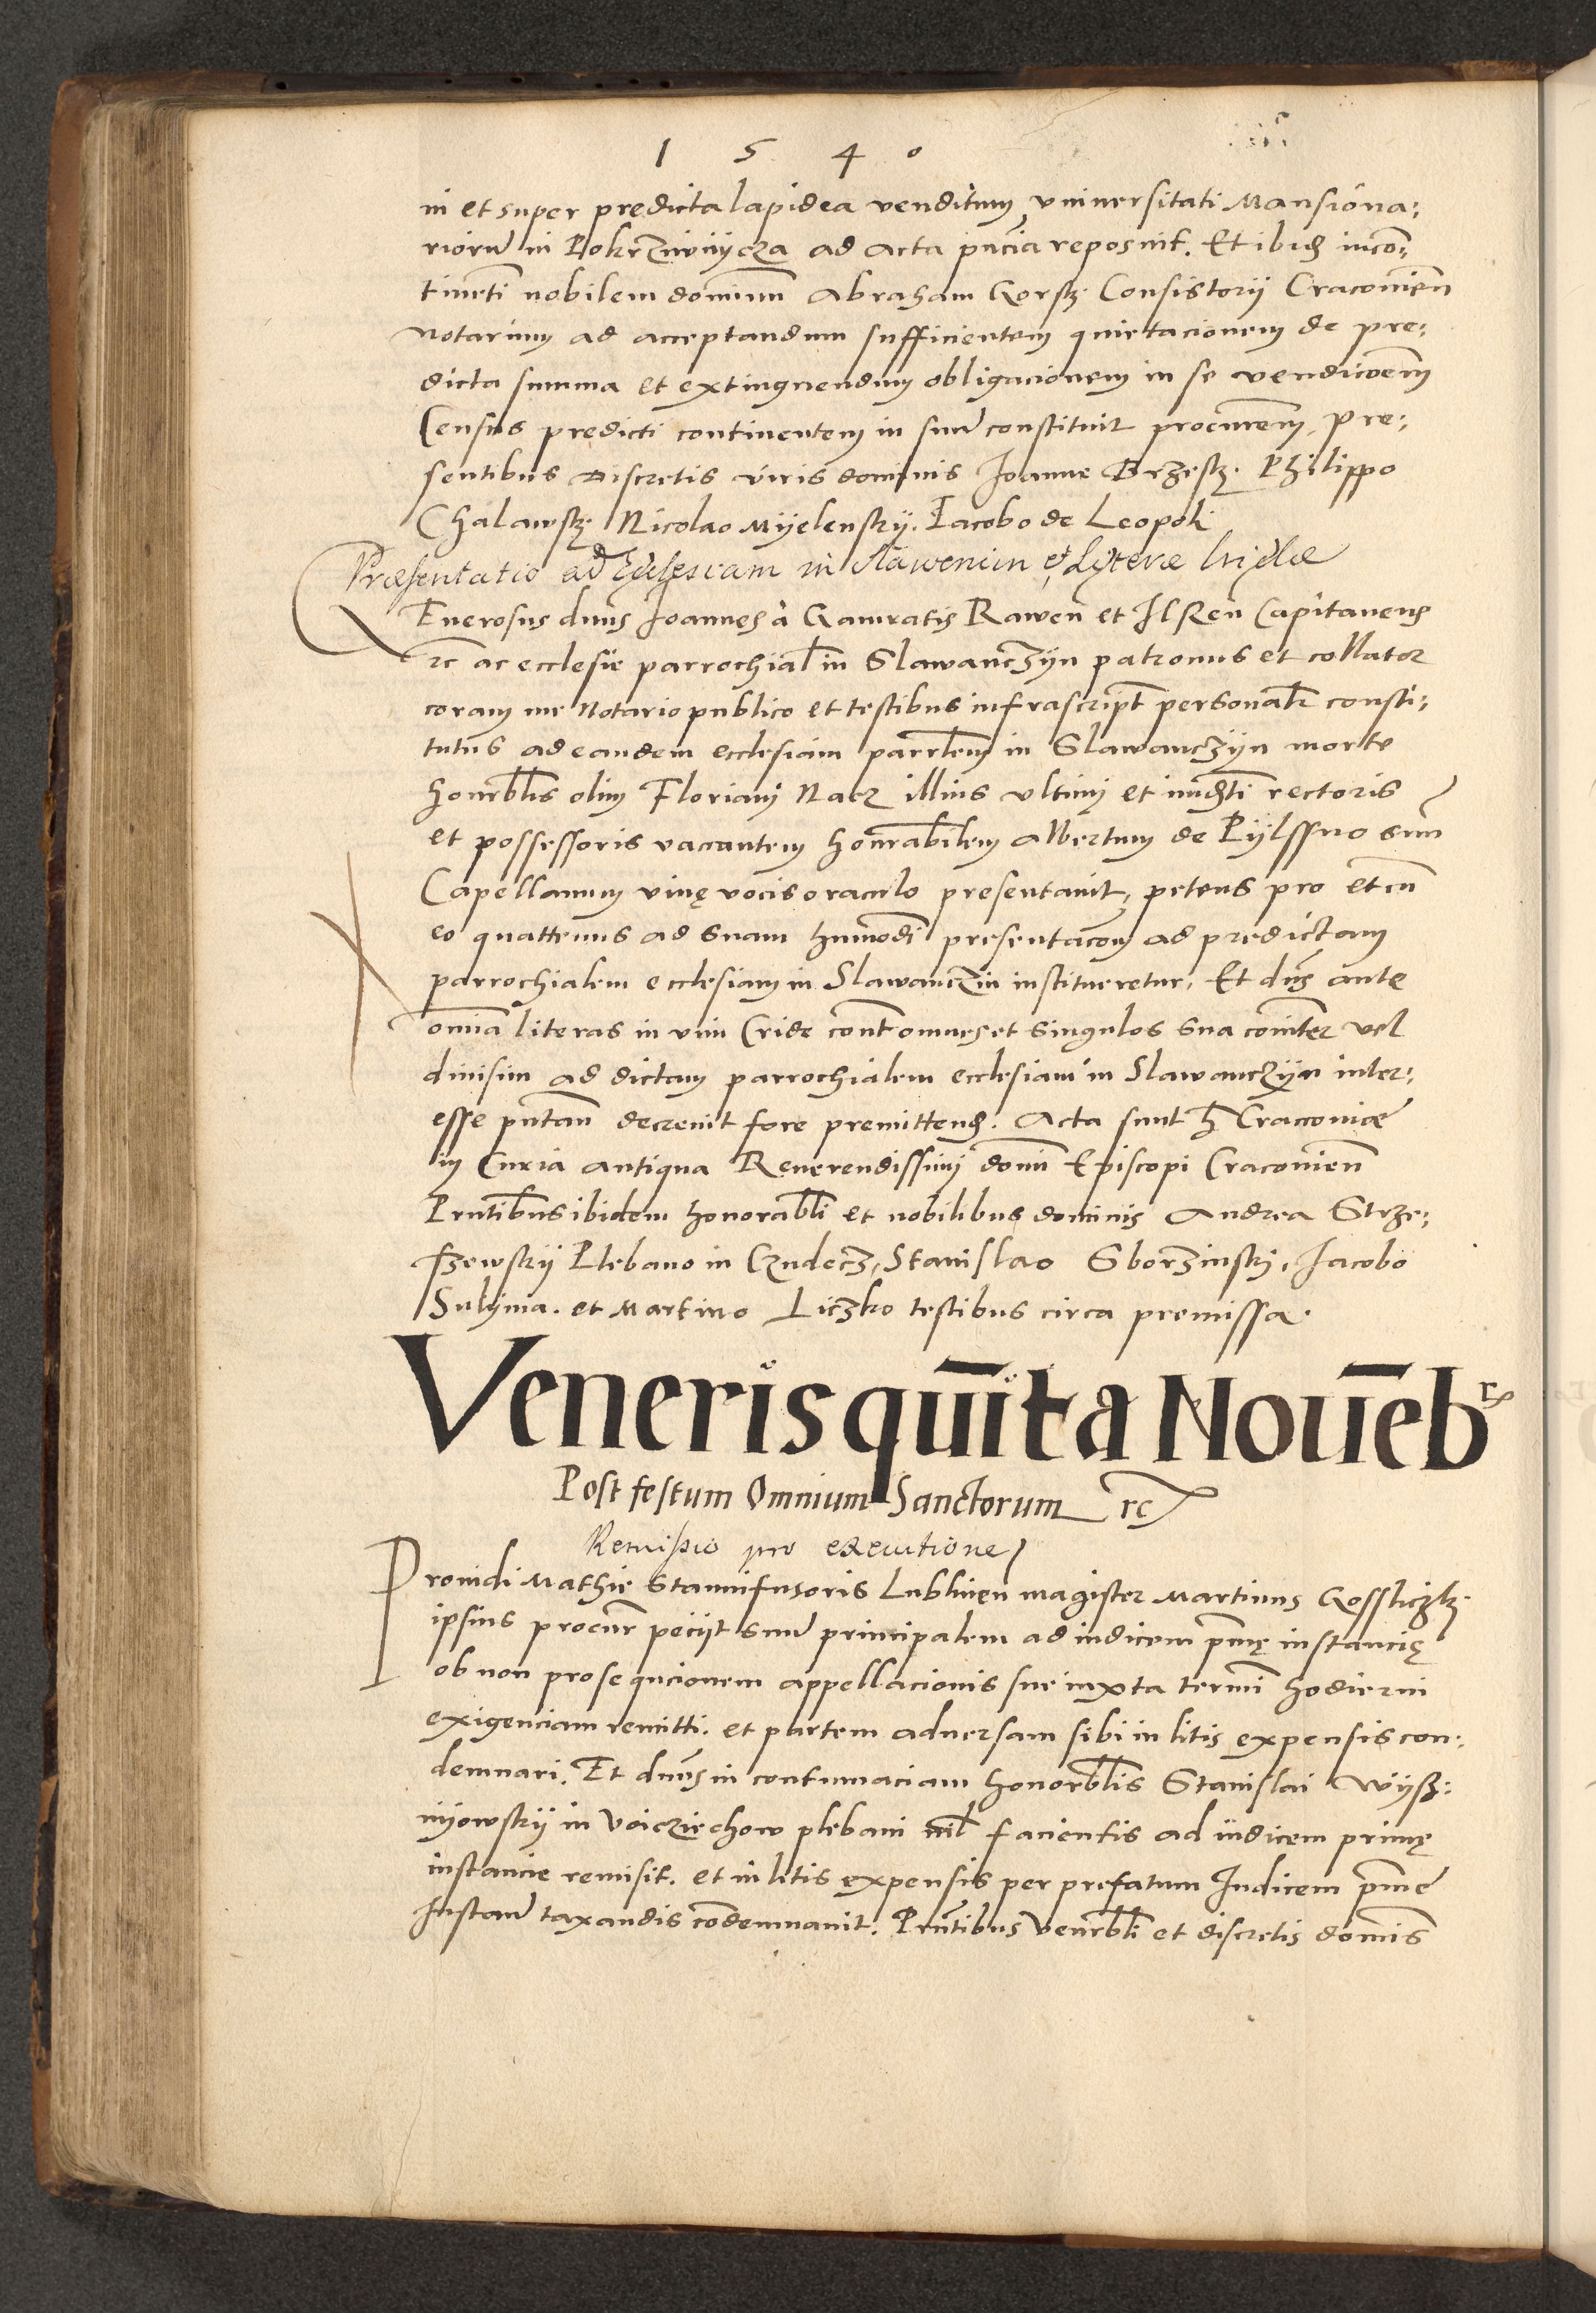 1 5 4 0
in et super predicta lapidea venditum, vniuersitati Mansiona:
riorũ in Pokrziwnycza ad Acta pñcia reposuit. Et ibid incõ:
tineñti nobilem dominum Abraham Gorsk. Consistorij Cracouieñ
Notarium ad acceptandum sufficientem quietacionem de pre:
dicta summa et extinguendum obligacionem in se vendicoẽm
Census predicti continentem in suũ constituit procurẽm, pre:
sentibus Discretis viris dominis Joanne Brzesk. Philippo
Chalawsk. Nicolao Myelenskij. Jacobo de Leopoli
Præsentatio ad Ecclesiam in Slawencin et Literæ Cridæ
Enerosus dnus Joannes à Gamratis Rawen et Ilsken Capitaneus
rc ac ecclesie parrochial in Slawanczyn patronus et collator
coram me Notario publico et testibus infrascript personalr consti:
tutus ad eandem ecclesiam parrlem in Slawanczyn morte
honrblis olim Floriani Nacz illius vltimi et imeđti rectoris
et possessoris vacantem honrabilem Albertum de Pylssno suũ
Capellanum viuę vocis oraculo presentauit, petens pro et cũ
eo quattenus ad suam huiusmodi presentacõem ad predictam
parrochialem ecclesiam in Slawanczin institueretur, Et dñs ante
omnia literas in vim Cride cont omnes et singulos sua coniter vel
diuisim ad dictam parrochialem ecclesiam in Slawanczyn inter:
esse putan decreuit fore premittend. Acta sunt h Cracouiæ
in Curia antiqua Reuerendissimi domi Episcopi Cracouieñ
Pñtibus ibidem honorabli et nobilibus dominis Andrea Strze:
szewskij Plebano in Czudecz, Stanislao Sborzinskj, Jacobo
Sulyma. et Martino Liczko testibus circa premissa.
Veneris quı̃ta Nouẽbr
Post festum Omnium Sanctorum rc
Remissio pro executione
Prouidi Mathie Stannifusoris Lublinen magister Martinus Gossliczk.
ipsius procur peciyt suũ principalem ad iudicem prmę instancię
ob non prosequcionem appellacionis sue iuxta termi hodierni
exigenciam remitti. et partem aduersam sibi in litis expensis con:
demnari. Et dnus in contumaciam honorblis Stanislai Wysz:
nyowskij in Voicziechow plebani nil facientis ad iudicem primę
instancie remisit. et in litis expensis per prefatum Iudicem prmę
Instanc taxandis condemnauit. Pñtibus Venrbli et discretis domis